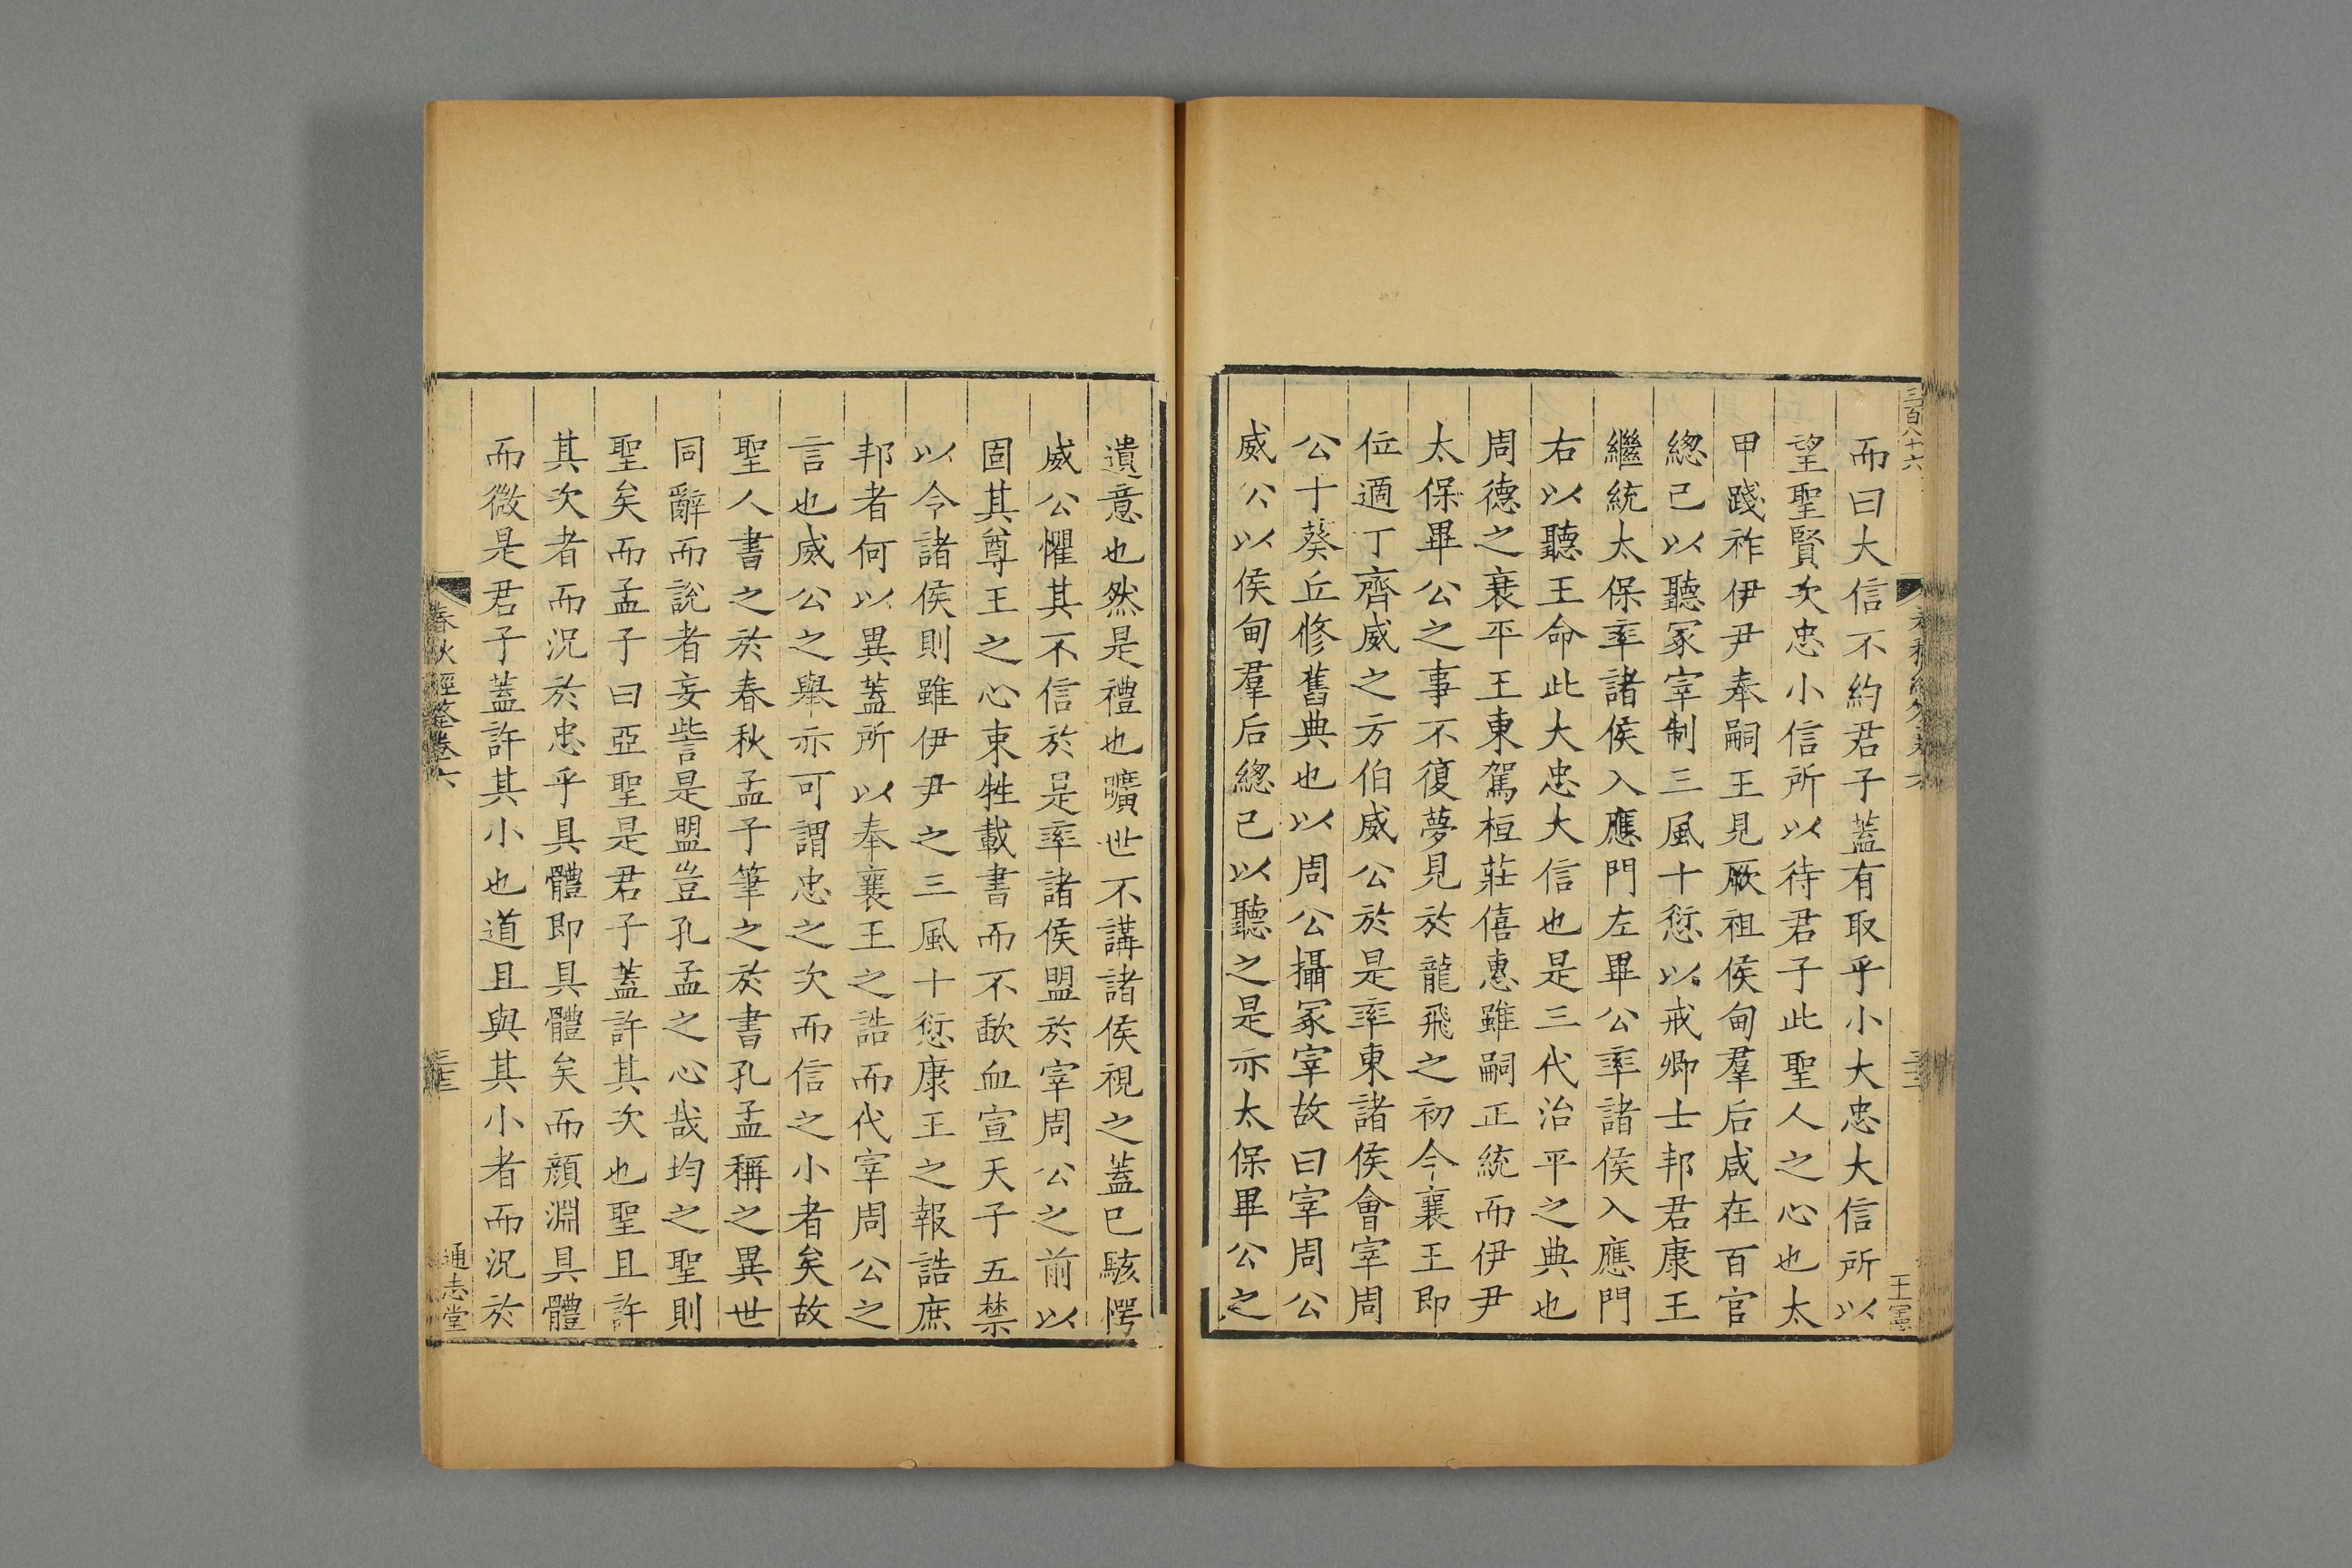 三百八十六
王寧
而曰大信不約君子蓋有取乎小大忠大信所以
望聖賢次忠小信所以待君子此聖人之心也太
甲踐祚伊尹奉嗣王見厥祖侯甸羣后咸在百官
緫己以聽冢宰制三風十愆以戒卿士邦君康王
繼統太保率諸侯入應門左畢公率諸侯入應門
右以聽王命此大忠大信也是三代治平之典也
周德之衰平王東駕桓莊僖惠雖嗣正統而伊尹
太保畢公之事不復夢見於龍飛之初今襄王即
位適丁齊威之方伯威公於是率東諸侯會宰周
公于葵丘修舊典也以周公攝冢宰故曰宰周公
威公以侯甸羣后緫己以聽之是亦太保畢公之
遺意也然是禮也曠世不講諸侯視之蓋已駭愕
威公懼其不信於是率諸侯盟於宰周公之前以
固其尊王之心束牲載書而不歃血宣天子五禁
以令諸侯則雖伊尹之三風十愆康王之報誥庶
邦者何以異蓋所以奉襄王之誥而代宰周公之
言也威公之舉亦可謂忠之次而信之小者矣故
聖人書之於春秋孟子筆之於書孔孟稱之異世
同辭而說者妄訾是盟豈孔孟之心哉均之聖則
聖矣而孟子曰亞聖是君子蓋許其次也聖且許
其次者而況於忠乎具體即具體矣而顏淵具體
而微是君子蓋許其小也道且與其小者而況於
春秋經筌卷六
三十三
通志堂